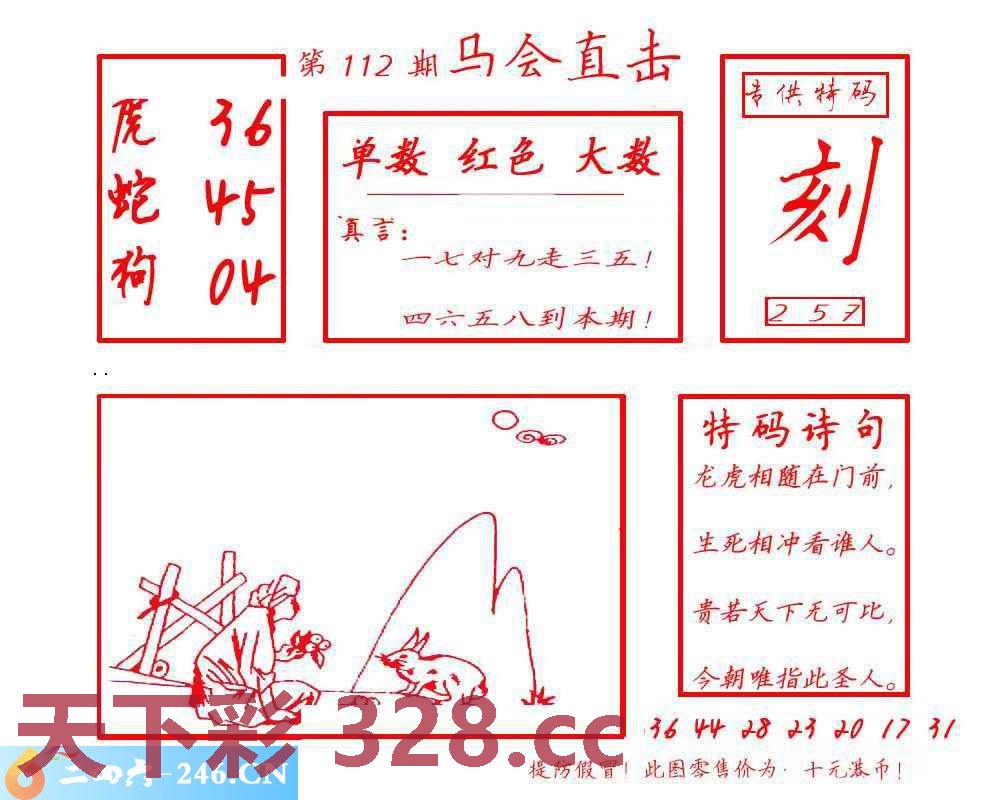 第 112 期 马会直击
虎 36
蛇 45
狗 04
单数 红色 大数
真言：
一七对九走三五！
四六五八到本期！
专供特码
刻
2 5 7
特码诗句
龙虎相随在门前，
生死相冲看谁人。
贵若天下无可比，
今朝唯指此圣人。
36 44 28 23 20 17 31
提防假冒！此图零售价为·十元港币！
天下彩 328.cc
二四六-246.CN